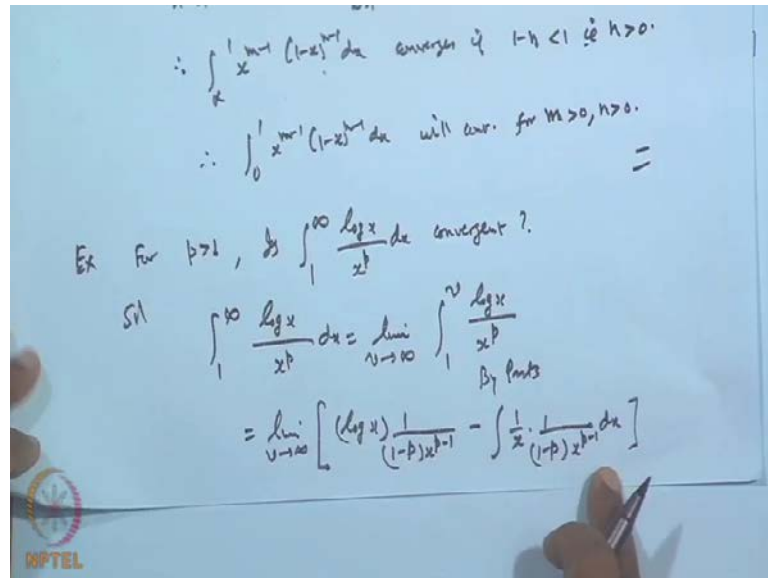 ∴ ∫_α^1 x^{m-1} (1-x)^{n-1} dx converges if 1-n < 1 ie n > 0.
∴ ∫_0^1 x^{m-1} (1-x)^{n-1} dx will conv. for m > 0, n > 0.
=
Ex For p > 1, Is ∫_1^∞ \frac{log x}{x^p} dx convergent ?
Sol ∫_1^∞ \frac{log x}{x^p} dx = lim_{v→∞} ∫_1^v \frac{log x}{x^p}
By Parts
= lim_{v→∞} [ (log x) \frac{1}{(1-p) x^{p-1}} - ∫ \frac{1}{x} . \frac{1}{(1-p) x^{p-1}} dx ]
NPTEL